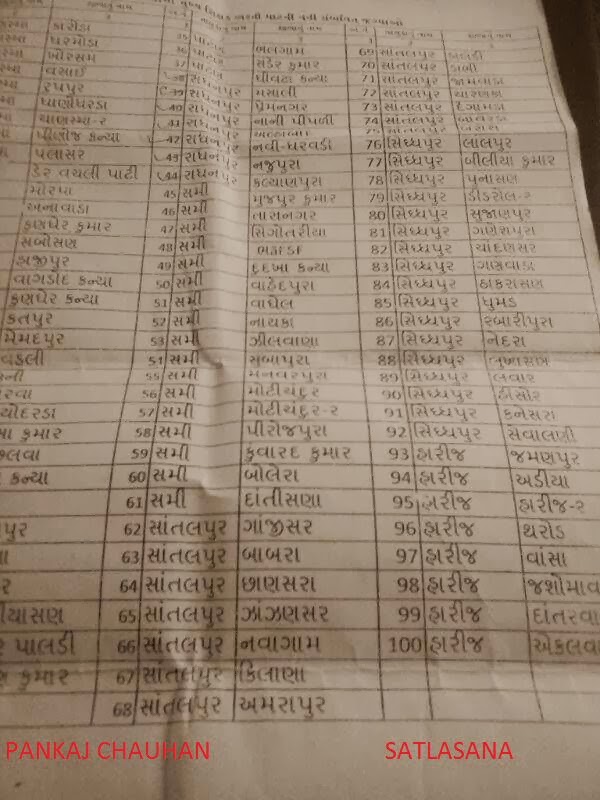 કારોડા ૩૫ પાટણ ભલગામ 69 સાંતલપુર
ધરમોડા 36 પાટણ સંડેર કુમાર 70 સાંતલપુર ડાબી
ખોરસમ 37 પાટણ પીવટા કન્યા 71 સાંતલપુર જામવાડા
વસાઈ 38 રાધનપુર મસાલી 72 સાંતલપુર ચારણકા
રૂપપુર 39 રાધનપુર પ્રેમનગર 73 સાંતલપુર દૈગામડા
પાણીધરડા 40 રાધનપુર નાની પીપળી 74 સાંતલપુર બાવરડા
ચાણસ્મા-ર 41 રાધનપુર 75 સાંતલપુર
પીણોજ કન્યા 42 રાધનપુર નવી-ધરવડી 76 સિધ્ધપુર લાલપુર
પલાસર 43 રાધનપુર નજુપુરા 77 સિધ્ધપુર બીલીયા કુમાર
ડેર વચલી પાટી 44 રાધનપુર કલ્યાણપુરા 78 સિધ્ધપુર પુનાસણ
મોરપા 45 સમી મુજપુર કુમાર 79 સિધ્ધપુર ડીંડરોલ-ર
અનાવાડા 46 સમી તારાનગર 80 સિધ્ધપુર સુજાણપુર
કુણઘેર કુમાર 47 સમી સિગોતરીયા 81 સિધ્ધપુર ગણેશપુરા
સબોસણ 48 સમી 82 સિધ્ધપુર ચાંદણસર
હાજીપુર 49 સમી દુદખા કન્યા 83 સિધ્ધપુર ગાંગલાસણ
વાગડોદ કન્યા 50 સમી વાહેદપુરા 84 સિધ્ધપુર ઠાકરાસણ
કુણઘેર કન્યા 51 સમી વાઘેલ 85 સિધ્ધપુર ધુમડ
કતપુર 52 સમી નાયકા 86 સિધ્ધપુર રબારીપુરા
મેમદપુર 53 સમી ઝીલવાણા 87 સિધ્ધપુર નેદરા
વડલી 54 સમી સુબાપુરા 88 સિધ્ધપુર લુખાસણ
55 સમી મનવરપુરા 89 સિધ્ધપુર લવાર
56 સમી મોટીચંદુર 90 સિધ્ધપુર હીસોર
57 સમી મોટીચંદુર-ર 91 સિધ્ધપુર કનેસરા
કુમાર 58 સમી પીરોજપુરા 92 સિધ્ધપુર સેવાલણી
59 સમી કુવારદ કુમાર 93 હારીજ જમણપુર
કન્યા 60 સમી બોલેરા 94 હારીજ અડીયા
61 સમી દાંતીસણા 95 હારીજ હારીજ-ર
પુર 62 સાંતલપુર ગાંજીસર 96 હારીજ થરોડ
63 સાંતલપુર બાબરા 97 હારીજ વાંસા
64 સાંતલપુર છાણસરા 98 હારીજ જશોમાવ
યાસણ 65 સાંતલપુર ઝાંઝણસર 99 હારીજ દાંતરવા
પાલડી 66 સાંતલપુર નવાગામ 100 હારીજ એકલવા
કુમાર 67 સાંતલપુર કિલાણા
68 સાંતલપુર અમરાપુર
PANKAJ CHAUHAN SATLASANA